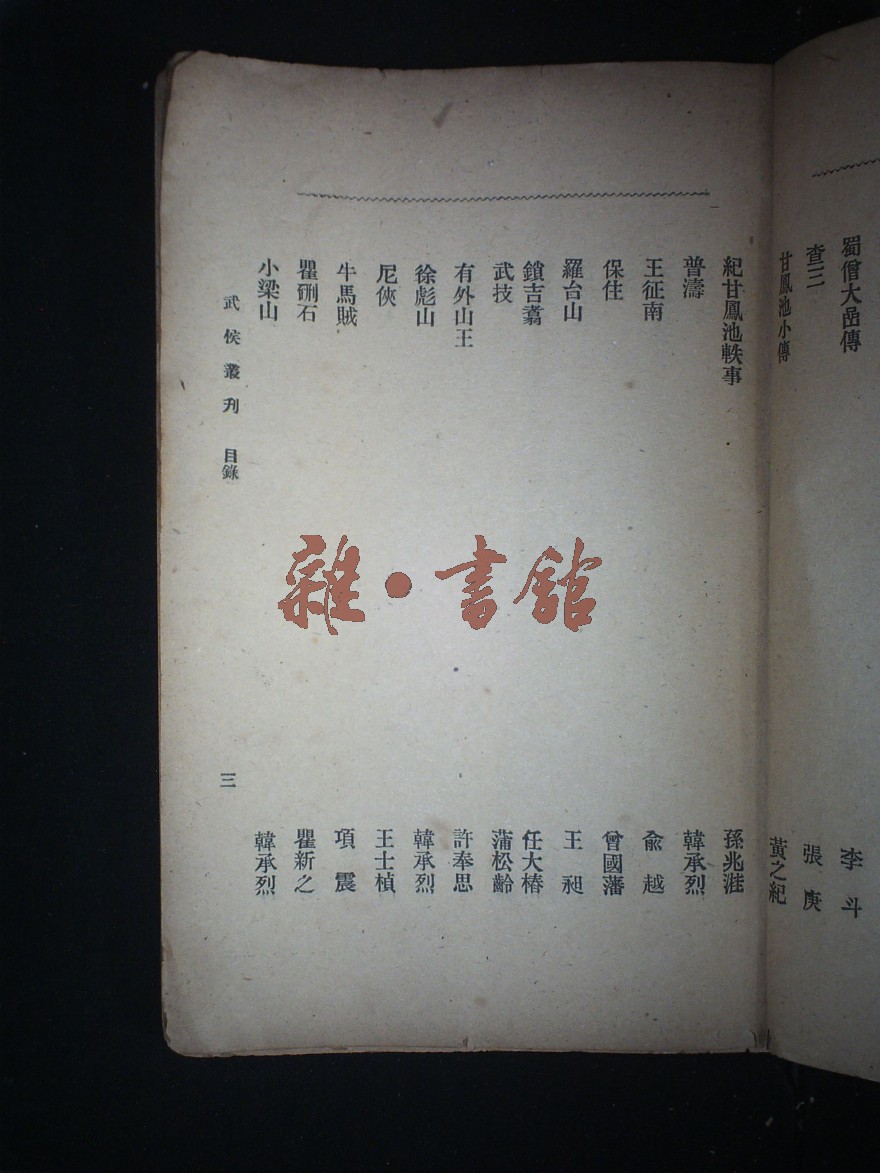 蜀僧大嵒傳 李斗
查三 張庚
甘鳳池小傳 黃之紀
紀甘鳳池軼事 孫兆溎
普濤 韓承烈
王征南 俞越
保住 曾國藩
羅台山 王昶
鎖吉翥 任大椿
武技 蒲松齡
有外山王 許奉思
徐彪山 韓承烈
尼俠 王士楨
牛馬賊 項震
瞿硎石 瞿新之
小梁山 韓承烈
武俠叢刋 目錄 三
雜·書館